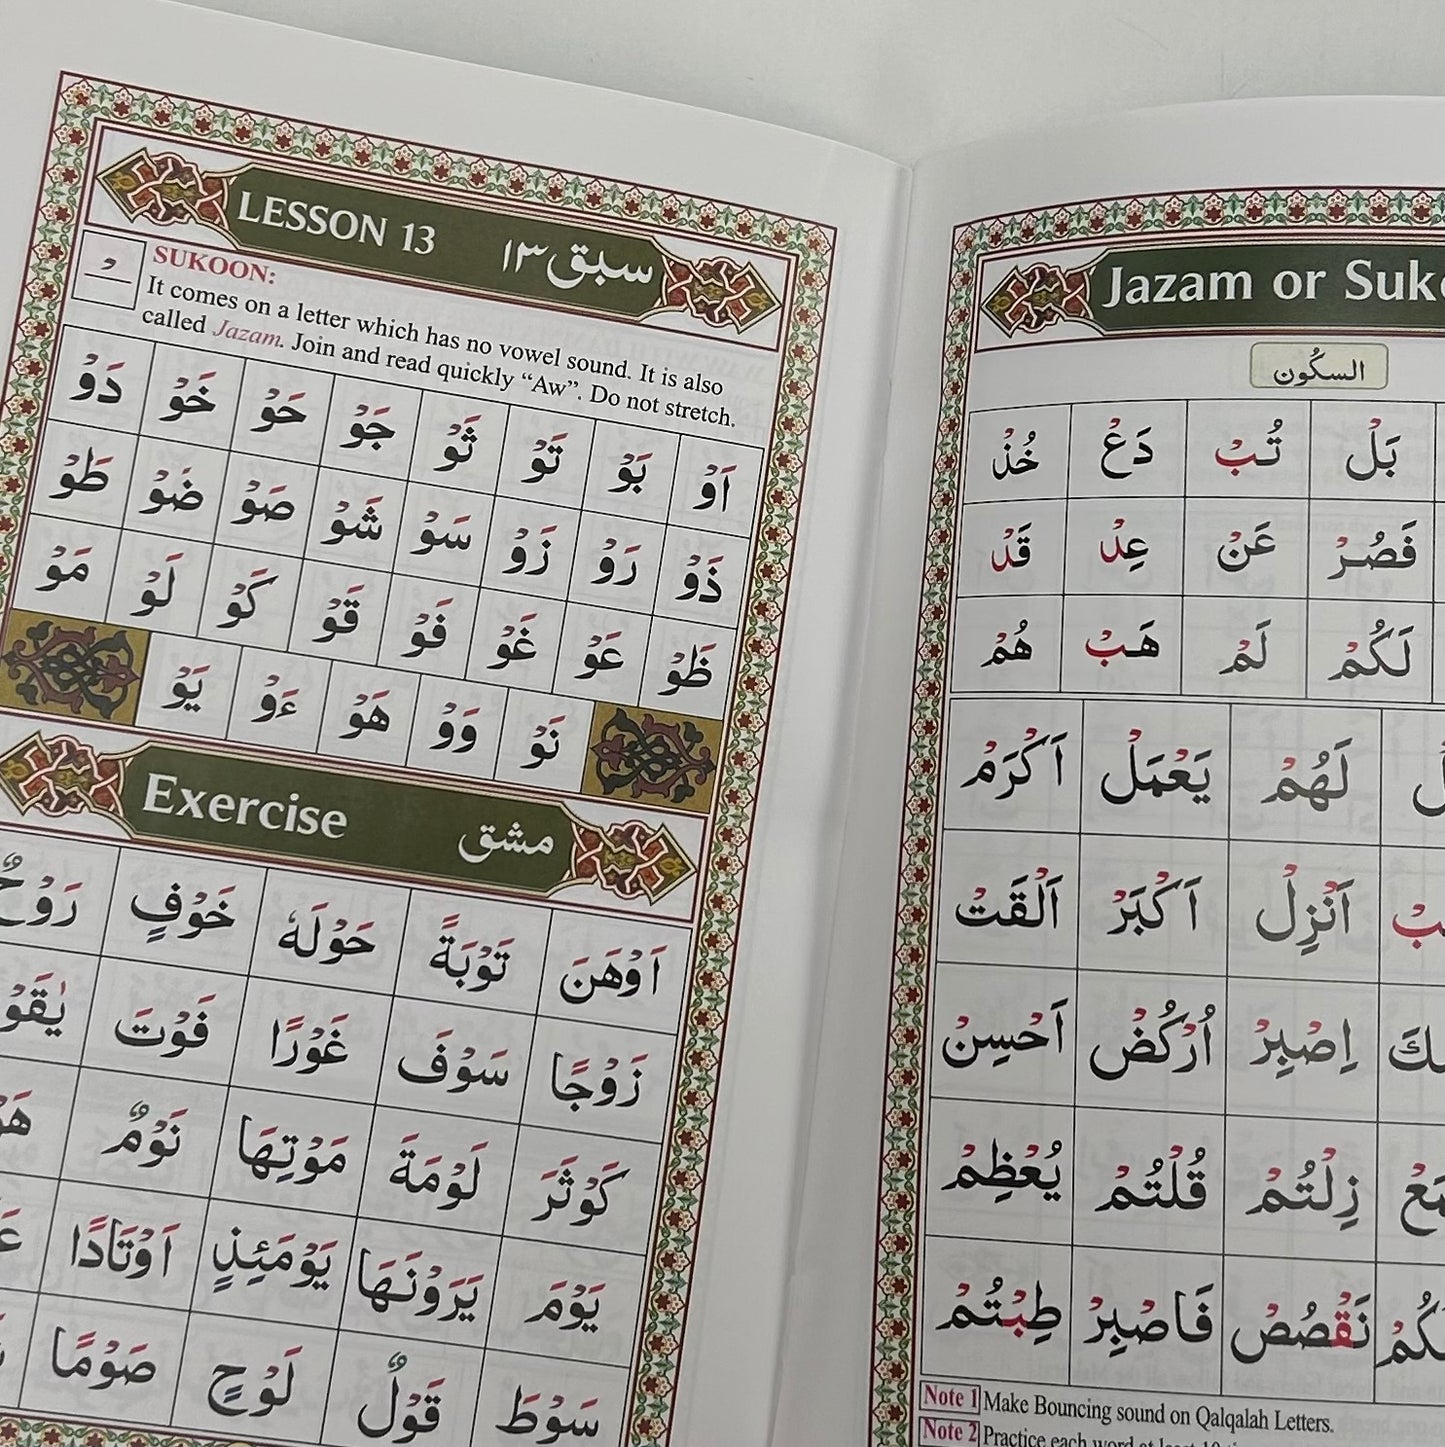 LESSON 13 سبق ۱۳
SUKOON:
It comes on a letter which has no vowel sound. It is also
called Jazam. Join and read quickly “Aw”. Do not stretch.
اَوْ بَوْ تَوْ ثَوْ جَوْ حَوْ خَوْ دَوْ
ذَوْ رَوْ زَوْ سَوْ شَوْ صَوْ ضَوْ طَوْ
ظَوْ عَوْ غَوْ فَوْ قَوْ كَوْ لَوْ مَوْ
نَوْ وَوْ هَوْ ءَوْ يَوْ
Exercise مشق
اَوْهَنَ تَوْبَةً حَوْلَهٗ خَوْفٍ
زَوْجًا سَوْفَ غَوْرًا فَوْتَ
كَوْثَرَ لَوْمَةَ مَوْتِهَا نَوْمٌ
يَوْمَ يَرَوْنَهَا يَوْمَئِذٍ اَوْتَادًا
سَوْطَ قَوْلٌ لَوْحٍ صَوْمًا
Jazam or
السكُون
بَلْ تُبْ دَعْ خُذْ
فَصُرْ عَنْ عِدْ قَدْ
لَكُمْ لَمْ هَبْ هُمْ
لَهُمْ يَعْمَلْ اَكْرَمْ
اَنْزِلْ اَكْبَرْ اَلْقَتْ
اِصْبِرْ اُرْكُضْ اَحْسِنْ
زِلْتُمْ قُلْتُمْ يُعْظِمْ
نَقْصُصْ فَاصْبِرْ طِبْتُمْ
Note 1 Make Bouncing sound on Qalqalah Letters.
Note 2 Practice each word at least 10